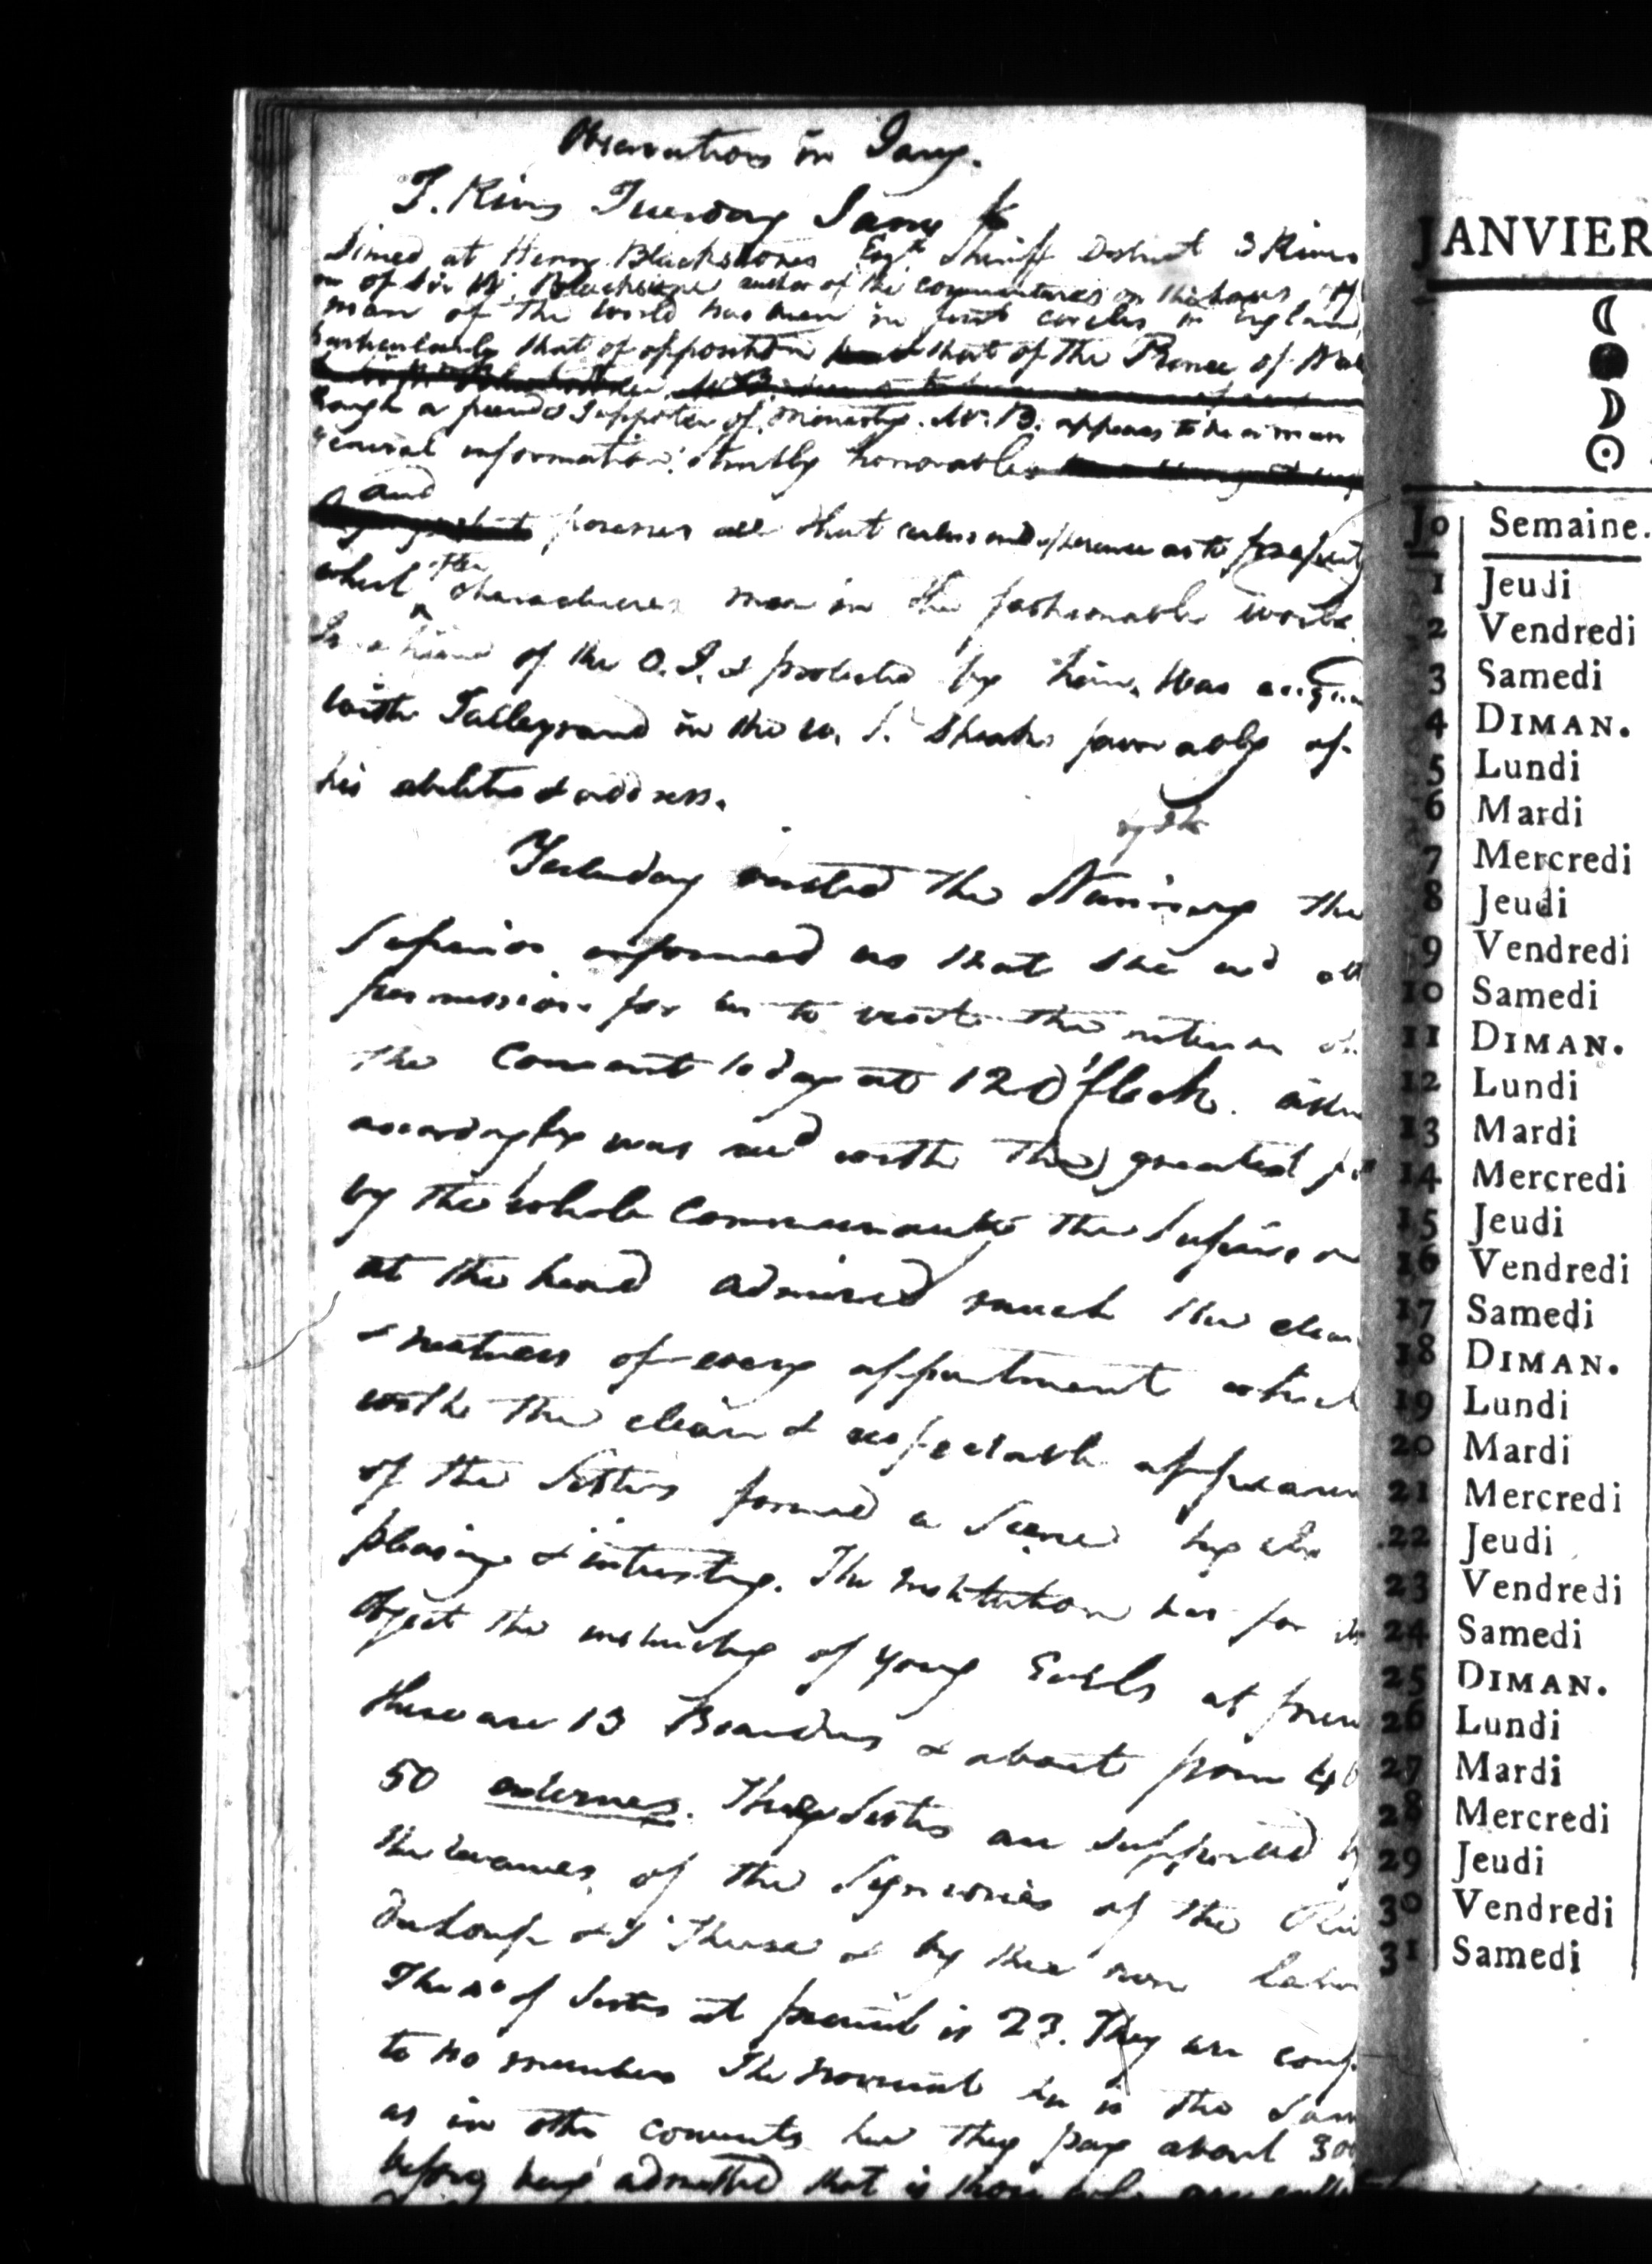 Observations in Jany.
T. Rivers Tuesday Jany 6
Dined at Henry Blackstones Esqr Sheriff District 3 Rivers
of Sir W. Blackstone author of the commentaries on the Laws of
man of the world has been in first circles in England
particularly that of opposition that of the Prince of Wal
though a friend & supporter of monarchy. Mr. B. appears to be a man
general information, strictly honorable
and
possesses all that careless indifference as to
which often characterises men in the fashionable world.
of the C. J. & protected by him. Was
with Talleyrand in the U. S. Speaks favorably of
his abilities & address.
Yesterday visited the Nunnery the
Superior informed us that she
permission for us to visit the interior
the Convent today at 12 O'Clock.
accordingly was recd with the greatest
by the whole Communauté the Superior
at the head admired much the clean
& neatness of every appartment which
with the clean & respectable appearan
of the Sisters formed a Scene
pleasing & interesting. The institution has for
object the instructing of young Girls at presen
there are 13 Boarders & about from 40
50 externes. These Sisters are supported by
the revenues of the Signiories of the Riv
Duloup & St Therese & by their own labor
The no of Sisters at present is 23. They are
to no number The noviciat is the Same
as in other convents here they pay about 300
before being admitted that is those who are
JANVIER
Jo Semaine.
1 Jeudi
2 Vendredi
3 Samedi
4 DIMAN.
5 Lundi
6 Mardi
7 Mercredi
8 Jeudi
9 Vendredi
10 Samedi
11 DIMAN.
12 Lundi
13 Mardi
14 Mercredi
15 Jeudi
16 Vendredi
17 Samedi
18 DIMAN.
19 Lundi
20 Mardi
21 Mercredi
22 Jeudi
23 Vendredi
24 Samedi
25 DIMAN.
26 Lundi
27 Mardi
28 Mercredi
29 Jeudi
30 Vendredi
31 Samedi